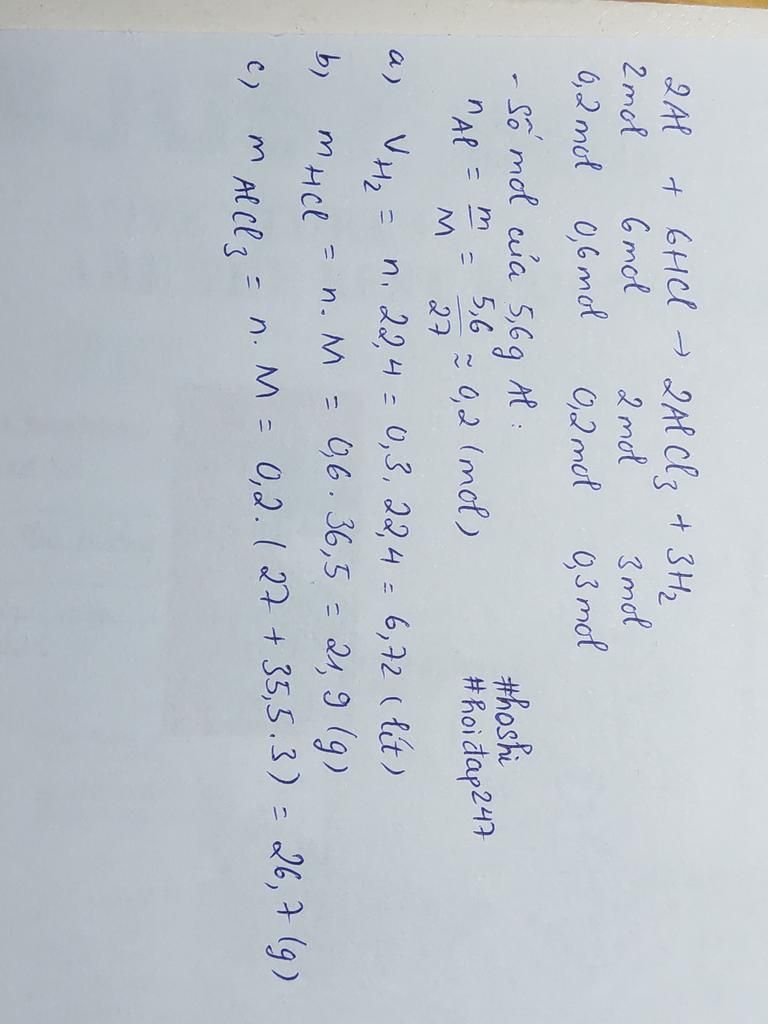 2Al + 6HCl → 2AlCl₃ + 3H₂
2mol 6mol 2mol 3mol
0,2mol 0,6mol 0,2mol 0,3mol
- Số mol của 5,6g Al :
nAl = m/M = 5,6/27 ≈ 0,2 (mol)
#hoshi
#hoidap247
a) VH₂ = n. 22,4 = 0,3. 22,4 = 6,72 (lít)
b) mHCl = n. M = 0,6. 36,5 = 21,9 (g)
c) mAlCl₃ = n. M = 0,2. (27 + 35,5.3) = 26,7 (g)